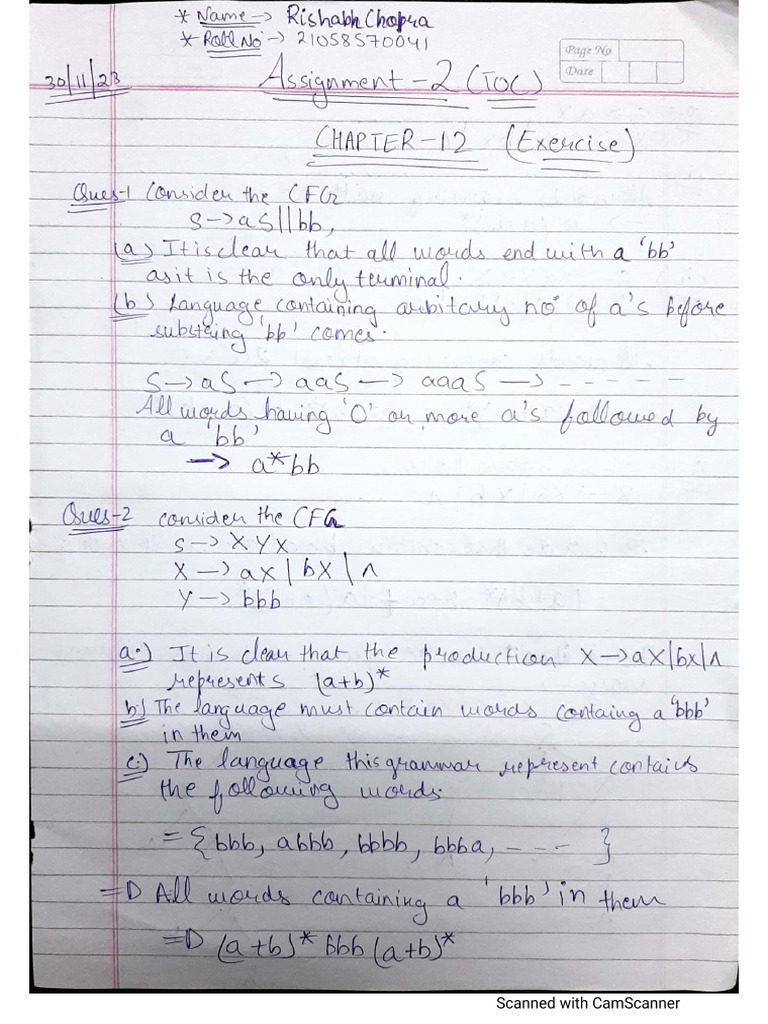 * Name -> Rishabh Chopra
* Roll No -> 21058570041
Page No
Date
30/11/23
Assignment - 2 (TOC)
CHAPTER - 12 (Exercise)
Ques-1 Consider the CFG
S -> aS||bb,
(a) It is clear that all words end with a 'bb'
as it is the only terminal.
(b) Language containing arbitary no of a's before
substring 'bb' comes.
S -> aS -> aaS -> aaaS -> - - - - - -
All words having '0' or more a's followed by
a 'bb'
-> a*bb
Ques-2 consider the CFG
S -> XYX
X -> aX | bX | Λ
Y -> bbb
a.) It is clear that the production X -> aX|bX|Λ
represents (a+b)*
b.) The language must contain words containg a 'bbb'
in them
c.) The language this grammar represent contains
the following words.
= {bbb, abbb, bbbb, bbba, - - - - }
=D All words containing a 'bbb' in them
=D (a+b)* bbb (a+b)*
Scanned with CamScanner